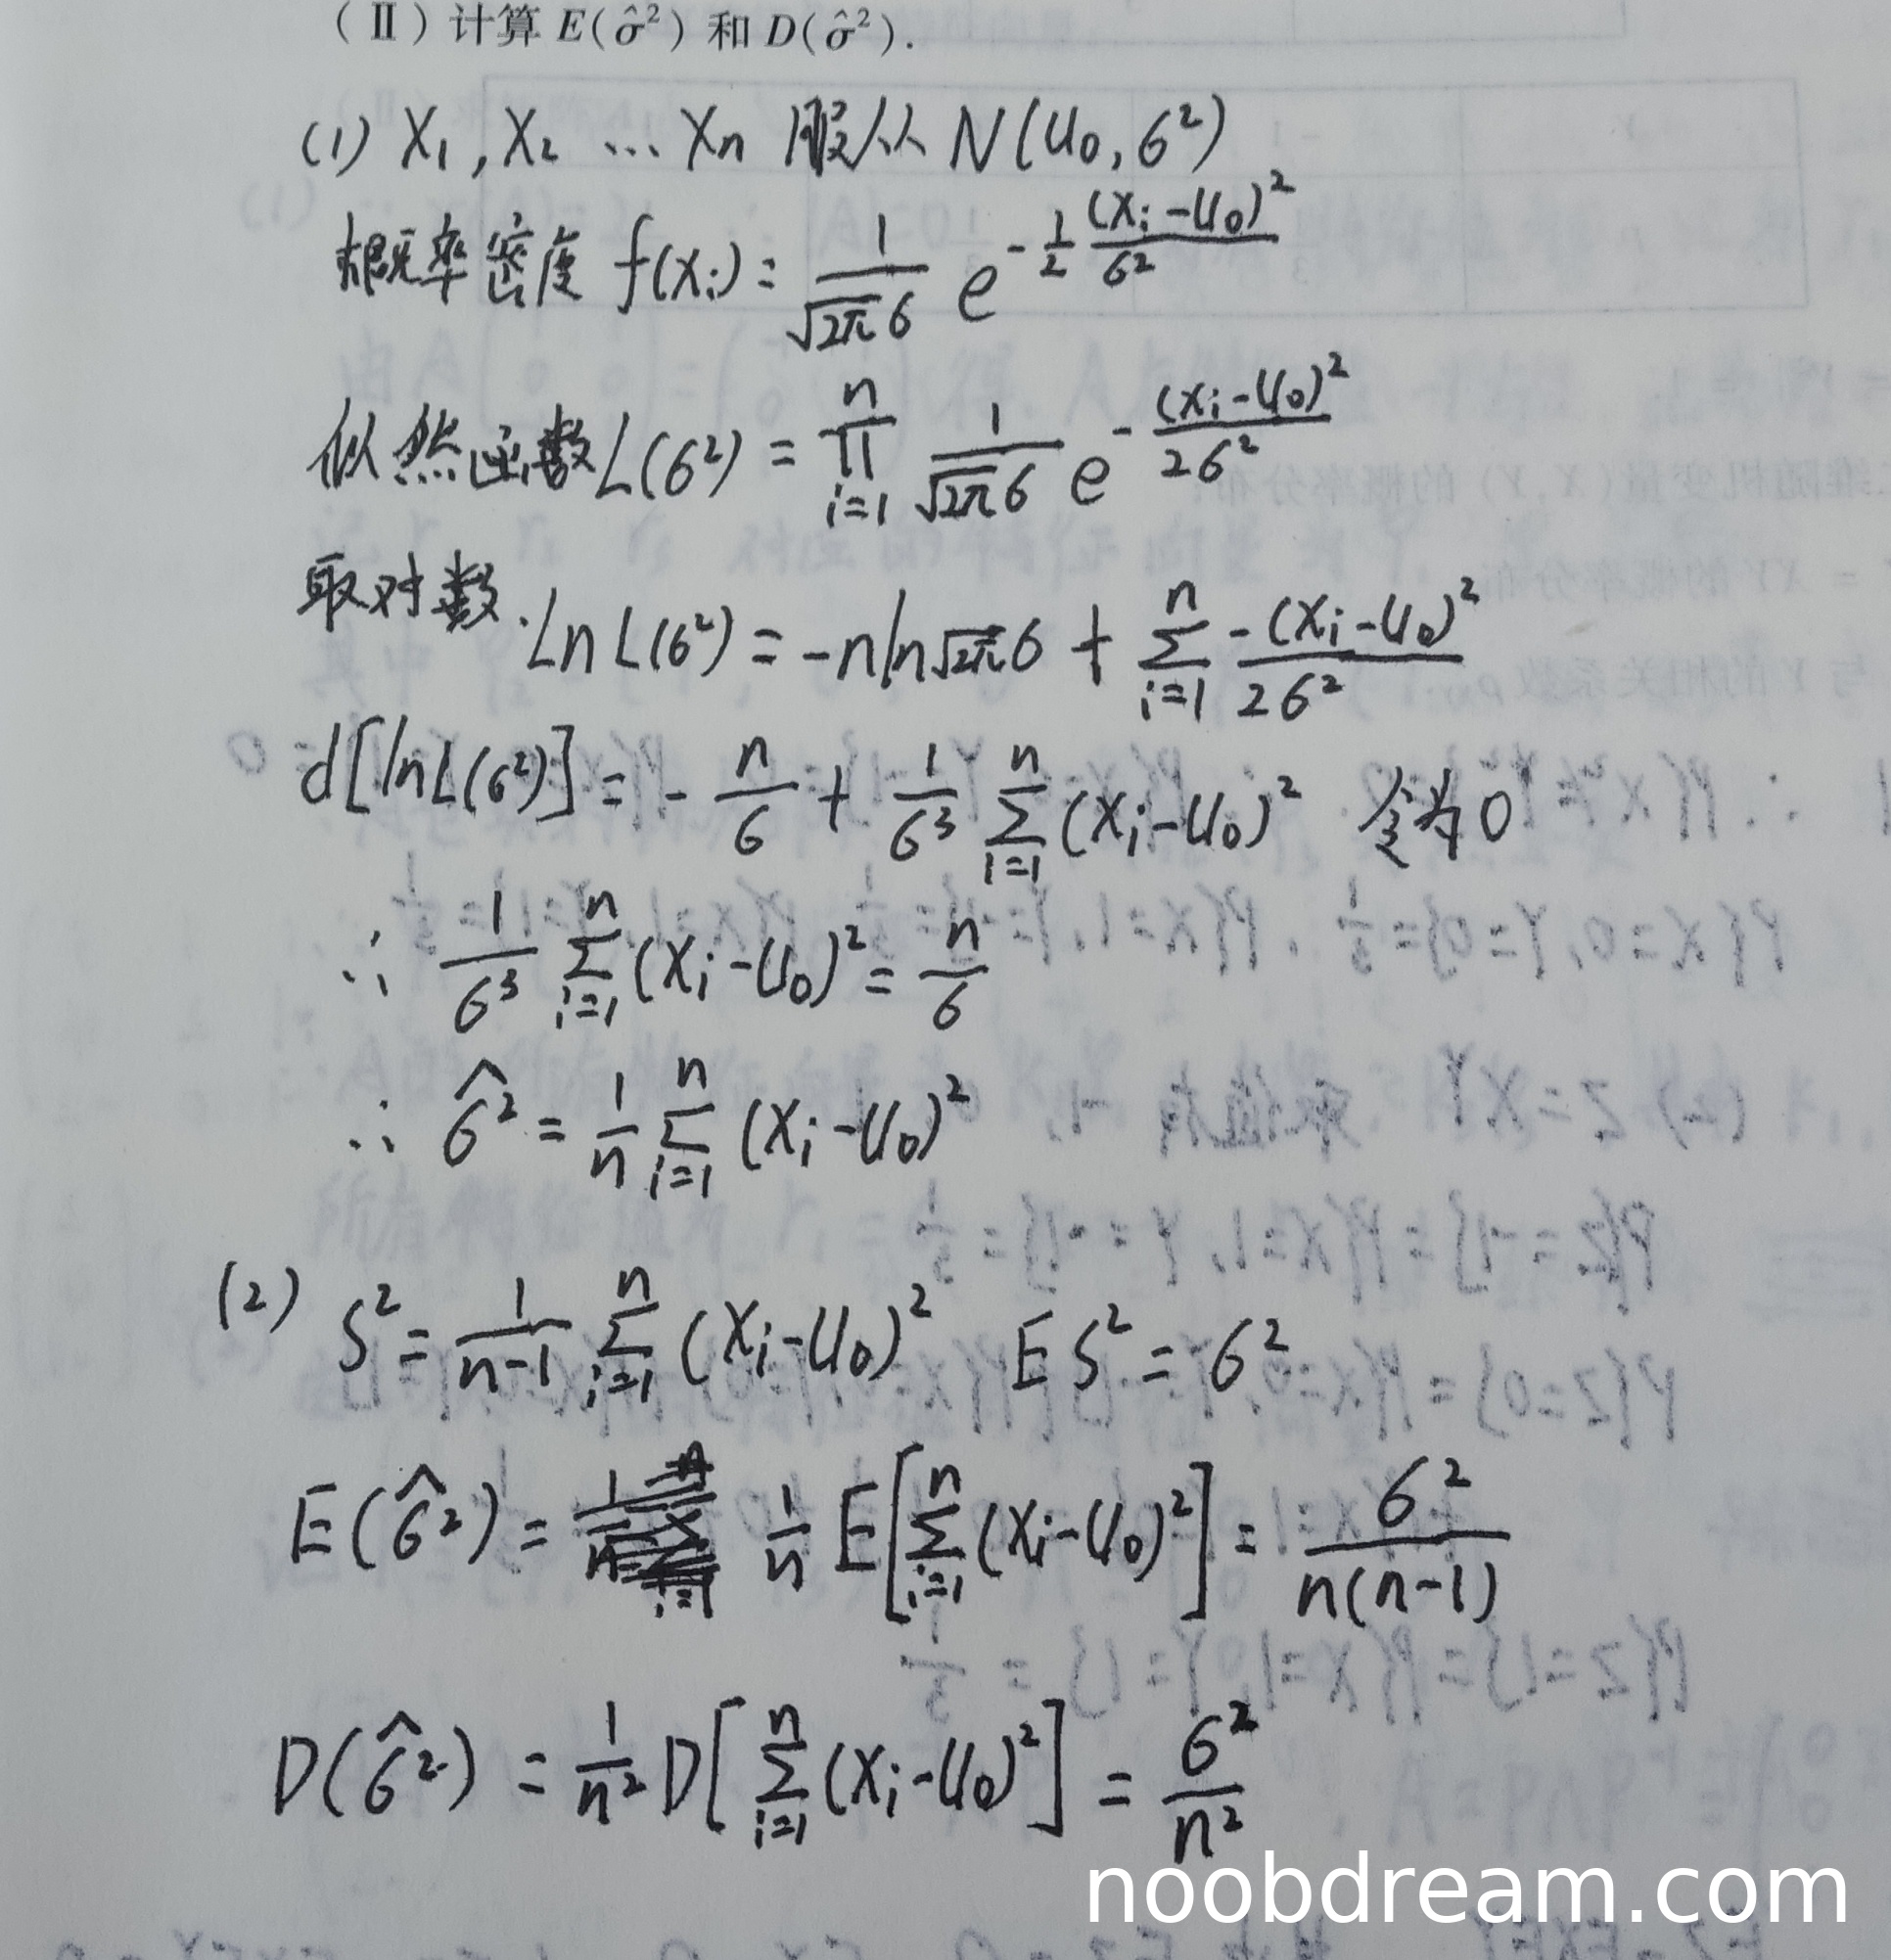 (Ⅱ) 计算 E(σ̂²) 和 D(σ̂²).
(1) X₁, X₂ … Xn 服从 N(u₀, σ²)
概率密度 f(xᵢ) = 1/(√(2π)σ) e^(-1/2 (xᵢ-u₀)²/σ²)
似然函数 L(σ²) = ∏_{i=1}^{n} 1/(√(2π)σ) e^(-(xᵢ-u₀)²/(2σ²))
取对数. Ln L(σ²) = -n ln√(2π)σ + ∑_{i=1}^{n} -(xᵢ-u₀)²/(2σ²)
d[lnL(σ²)] = - n/σ + 1/σ³ ∑_{i=1}^{n} (xᵢ-u₀)² 令为0
∴ 1/σ³ ∑_{i=1}^{n} (xᵢ-u₀)² = n/σ
∴ σ̂² = 1/n ∑_{i=1}^{n} (xᵢ-u₀)²
(2) S² = 1/(n-1) ∑_{i=1}^{n} (xᵢ-u₀)² ES² = σ²
E(σ̂²) = 1/n E[∑_{i=1}^{n} (xᵢ-u₀)²] = σ²/(n(n-1))
D(σ̂²) = 1/n² D[∑_{i=1}^{n} (xᵢ-u₀)²] = σ²/n²
noobdream.com